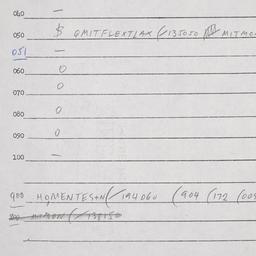 040 —
050 $ QMITFLEXTLAX (/135050 MITMO
051 —
060 0
070 0
080 0
090 0
100 —
900 HOMENTES+N(/194060 (904 (172 (005